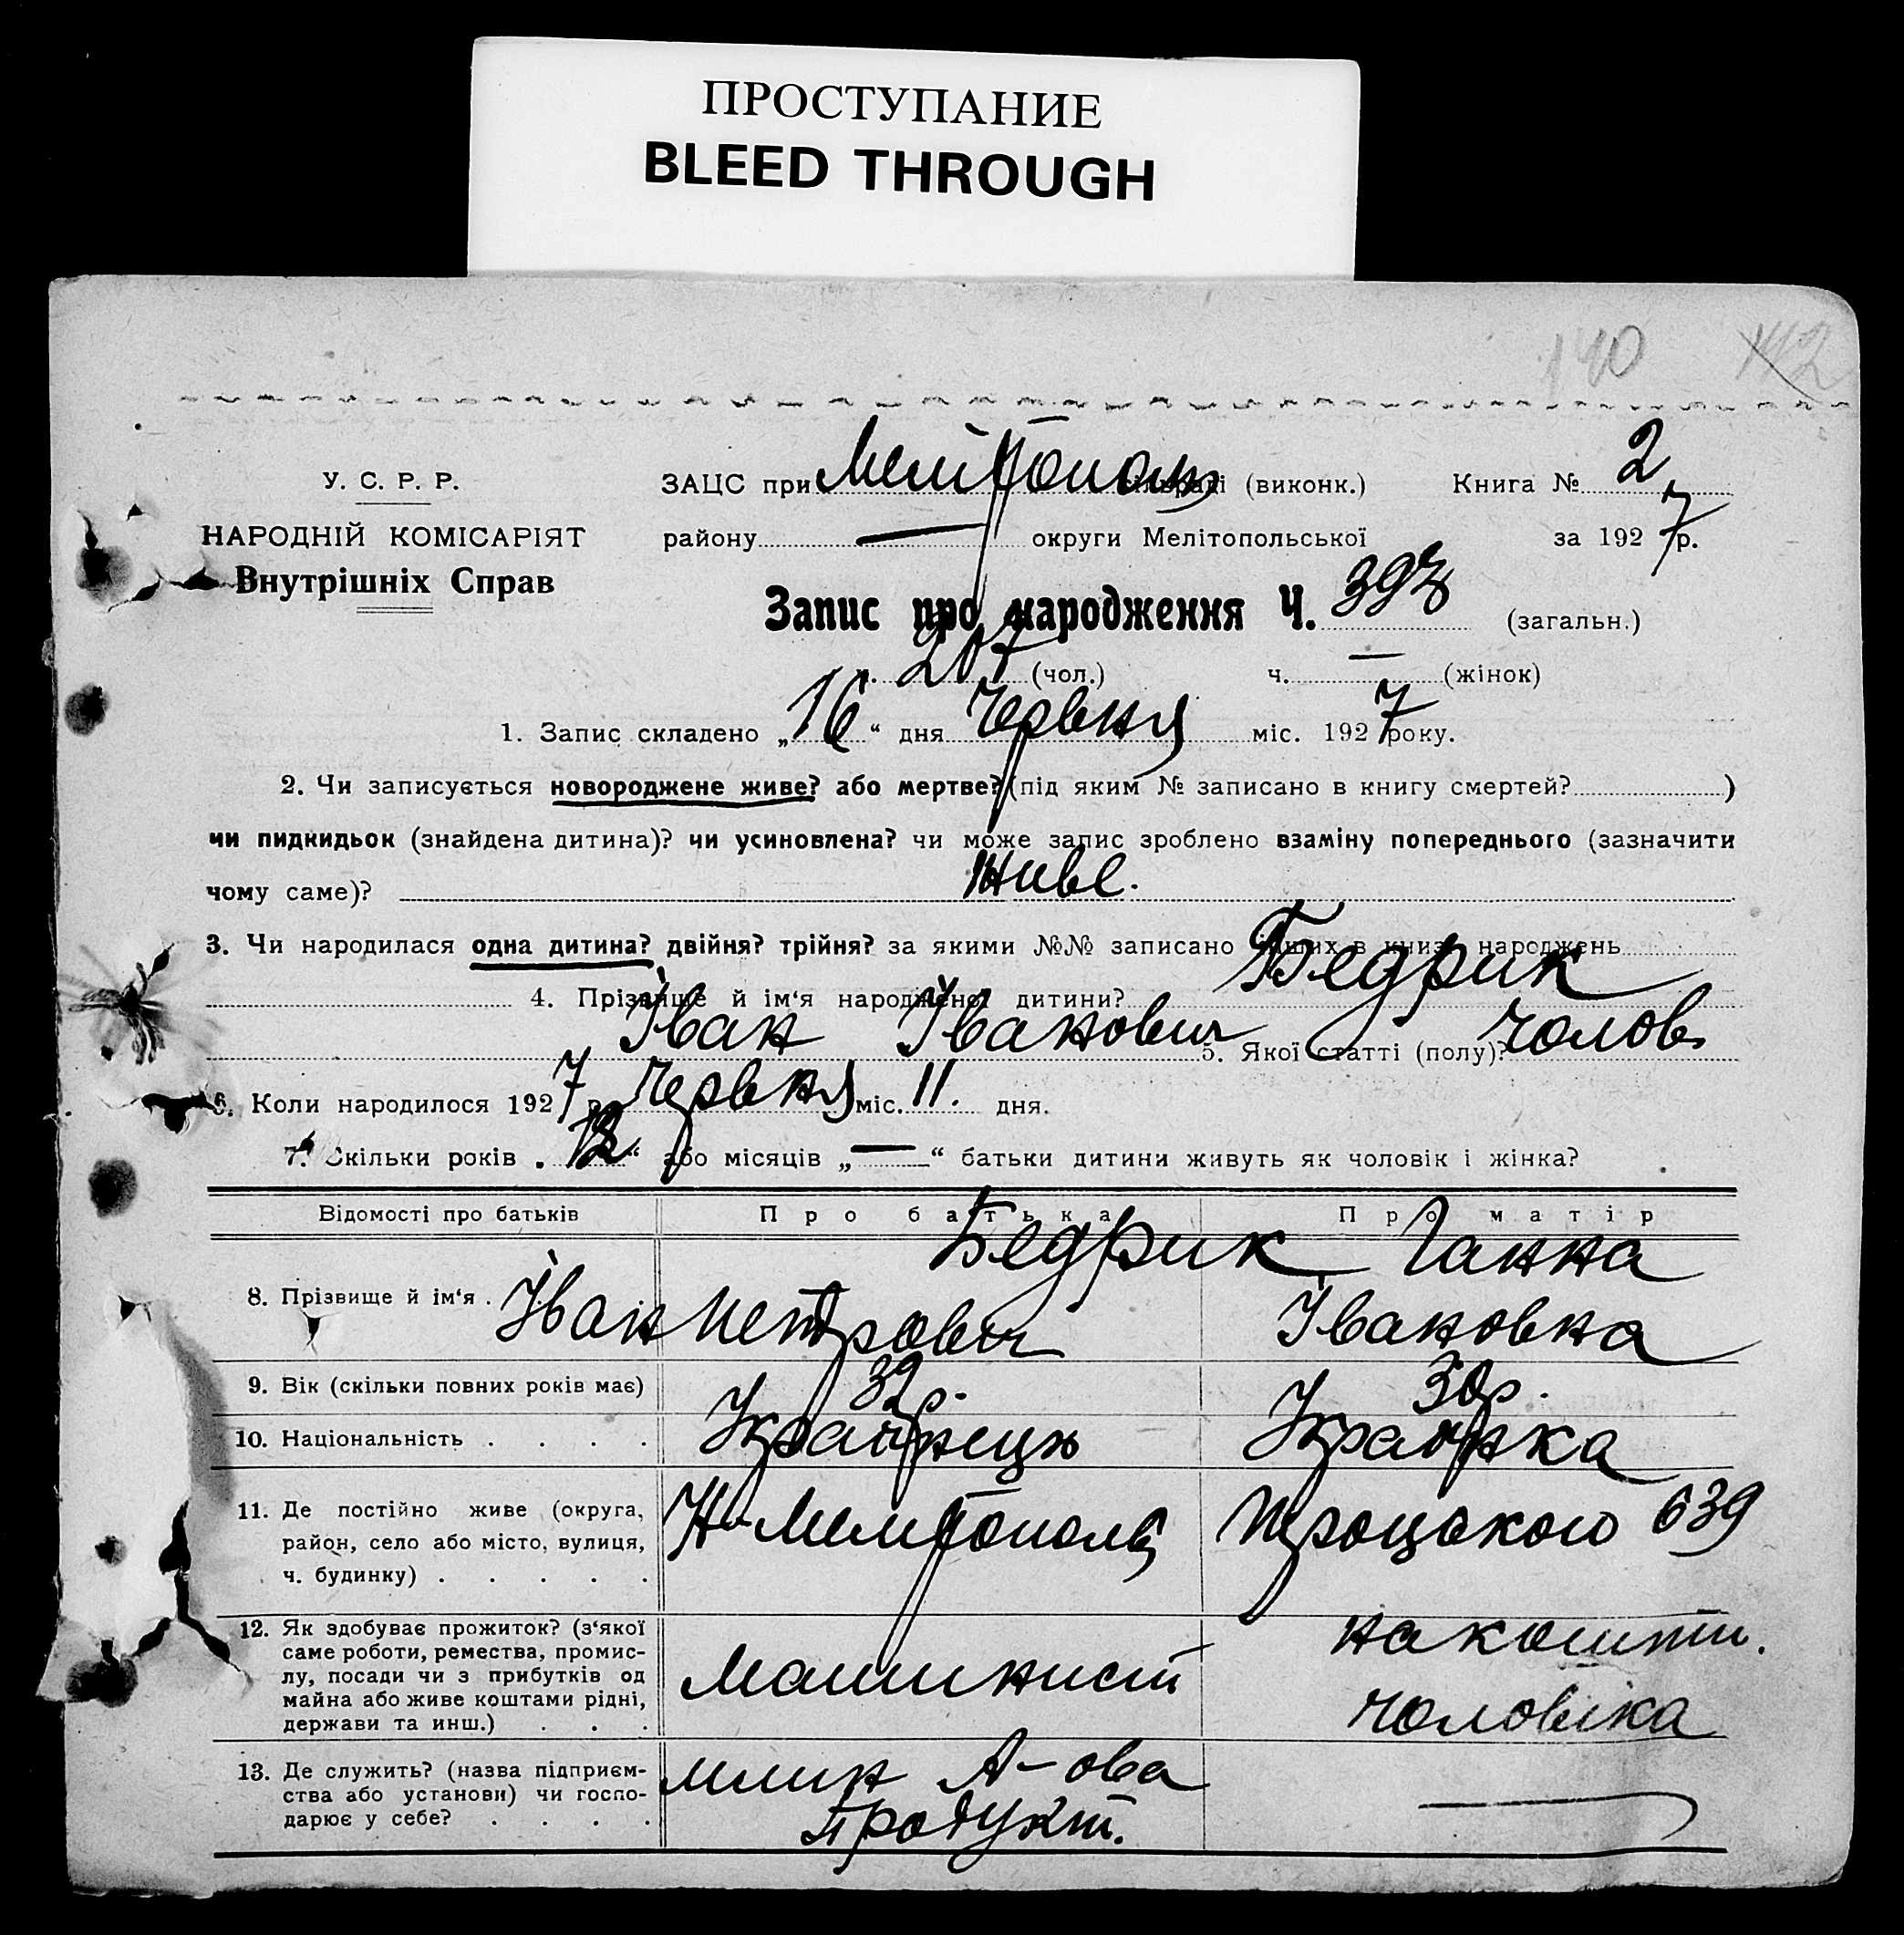 ПРОСТУПАНИЕ
BLEED THROUGH
140 142
У. С. Р. Р.
НАРОДНІЙ КОМІСАРІЯТ
Внутрішніх Справ
ЗАЦС при Меліітополь сільраді (виконк.) Книга № 2
району — округи Мелітопольської за 1927 р.
Запис про народження Ч. 398 (загальн.)
ч. 207 (чол.) ч. — (жінок)
1. Запис складено „16“ дня Червня міс. 1927 року.
2. Чи записується новороджене живе? або мертве? (під яким № записано в книгу смертей? )
чи пидкидьок (знайдена дитина)? чи усиновлена? чи може запис зроблено взаміну попереднього (зазначити
чому саме)? живе.
3. Чи народилася одна дитина? двійня? трійня? за якими №№ записано інших в книзі народжень
4. Прізвище й ім‘я народженої дитини? Бедрик
Іван Іванович 5. Якої статті (полу)? чолов.
6. Коли народилося 1927 р. Червня міс. 11. дня.
7. Скільки років „12“ або місяців „—“ батьки дитини живуть як чоловік і жінка?
Відомості про батьків Про батька Про матір
8. Прізвище й ім‘я . Бедрик Іван Петрович Ганна Івановна
9. Вік (скільки повних років має) 39 р. 30 р.
10. Національність . . . . Українець Українка
11. Де постійно живе (округа, район, село або місто, вулиця, ч. будинку) . . . . . Н-Мелітополь Троцького 639
12. Як здобуває прожиток? (з‘якої саме роботи, ремества, промислу, посади чи з прибутків од майна або живе коштами рідні, держави та инш.) . . . Машиніст на кошти. чоловіка
13. Де служить? (назва підприємства або установи) чи господарює у себе? . . . . млин А-ова Продукт. —